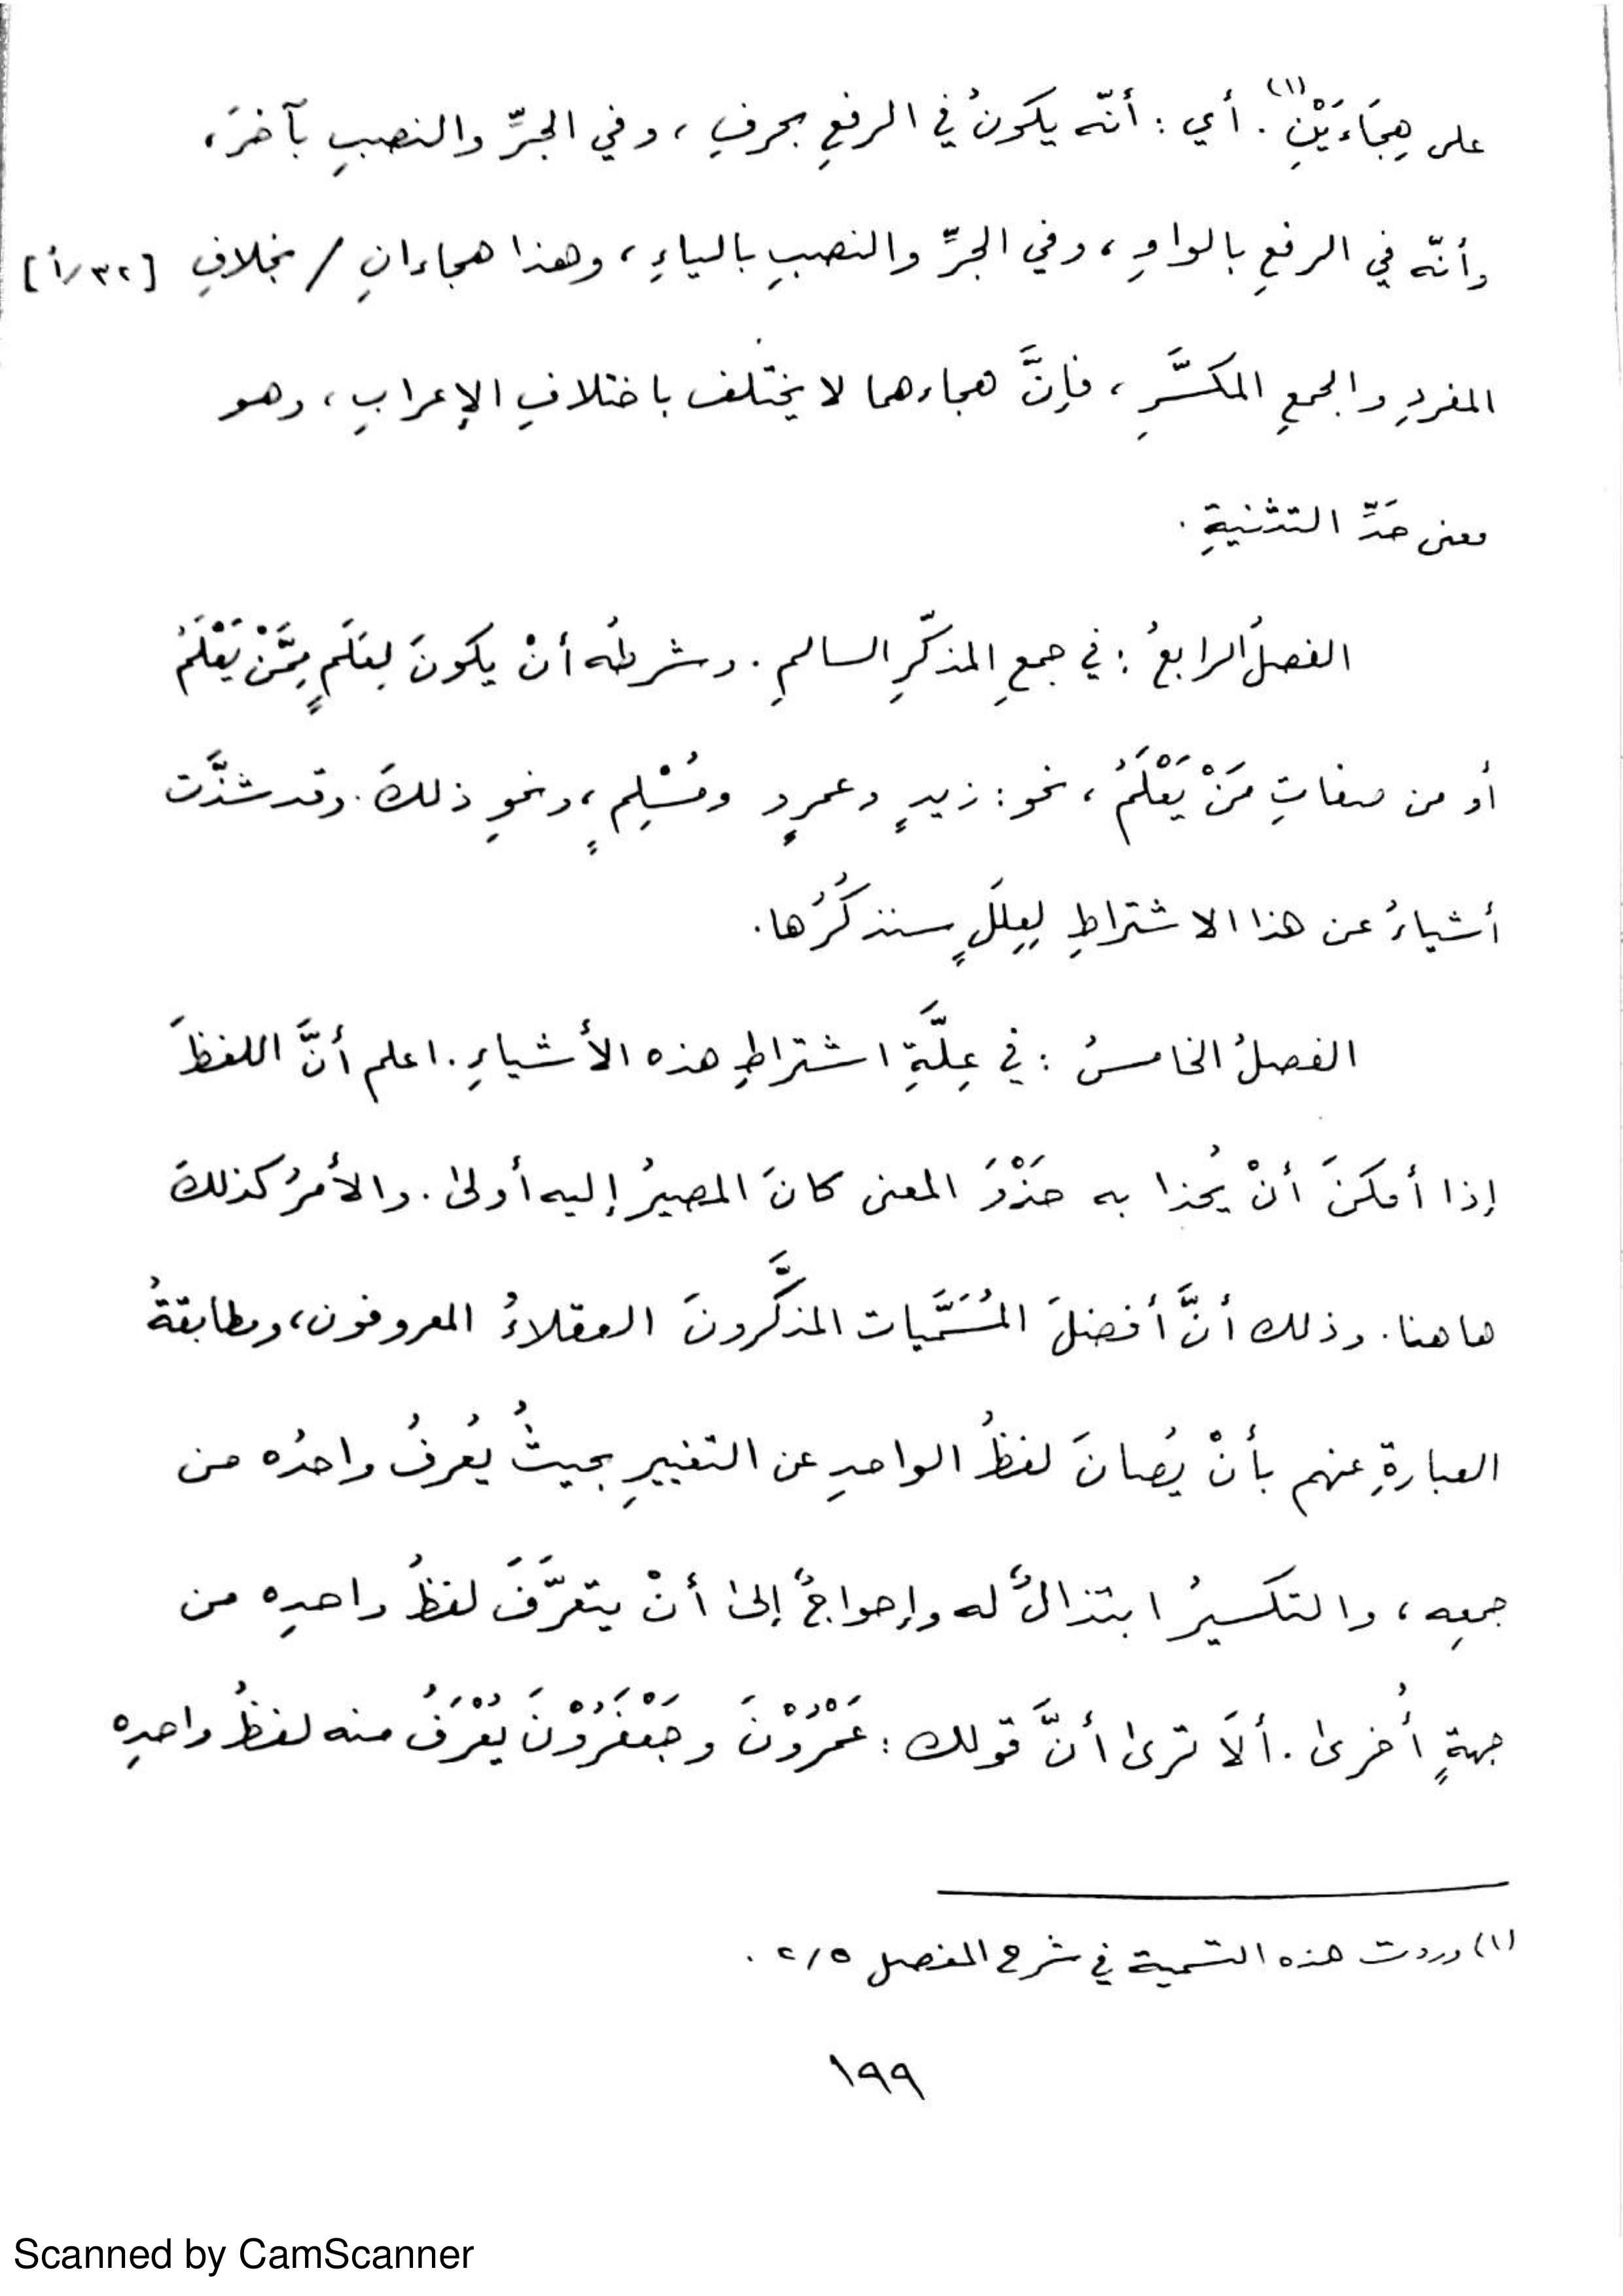 على هِجَاءَيْنِ(١). أي: أنّه يكونُ في الرفعِ بحرفٍ، وفي الجرِّ والنصبِ بآخرَ،
وأنّه في الرفعِ بالواوِ، وفي الجرِّ والنصبِ بالياءِ، وهذا هجاءانِ / بخلافِ [٣٢/أ]
المفردِ والجمعِ المكسَّرِ، فإنَّ هجاءهما لا يختلف باختلافِ الإعرابِ، وهو
معنى حَدِّ التثنيةِ.
الفصلُ الرابعُ: في جمعِ المذكّرِ السالمِ. وشرطُه أنْ يكونَ لِعَلَمٍ مِمَّنْ يَعْلَمُ
أو من صفاتِ مَنْ يَعْلَمُ، نحو: زيدٍ وعمرٍو ومُسْلِمٍ، ونحوِ ذلكَ. وقد شذَّت
أشياءُ عن هذا الاشتراطِ لِعِلَلٍ سنذكُرُها.
الفصلُ الخامسُ: في عِلَّةِ اشتراطِ هذه الأشياءِ. اعلم أنَّ اللفظَ
إذا أمكنَ أنْ يُحذا به حَذْوَ المعنى كانَ المصيرُ إليه أولىٰ. والأمرُ كذلكَ
هاهنا. وذلك أنَّ أفضلَ المُسَمَّيات المذكَّرونَ العقلاءُ المعروفون، ومطابقةُ
العبارةِ عنهم بأنْ يُصانَ لفظُ الواحدِ عن التغييرِ بحيثُ يُعرفُ واحدُه من
جمعِه، والتكسيرُ ابتذالٌ له وإحواجٌ إلىٰ أنْ يتعرَّفَ لفظُ واحدِه من
جهةٍ أُخرىٰ. ألَا ترىٰ أنَّ قولك: عَمْرُوْنَ وجَعْفَرُوْنَ يُعْرَفُ منه لفظُ واحدِه
(١) وردت هذه التسمية في شرح المفصل ٢/٥.
١٩٩
Scanned by CamScanner